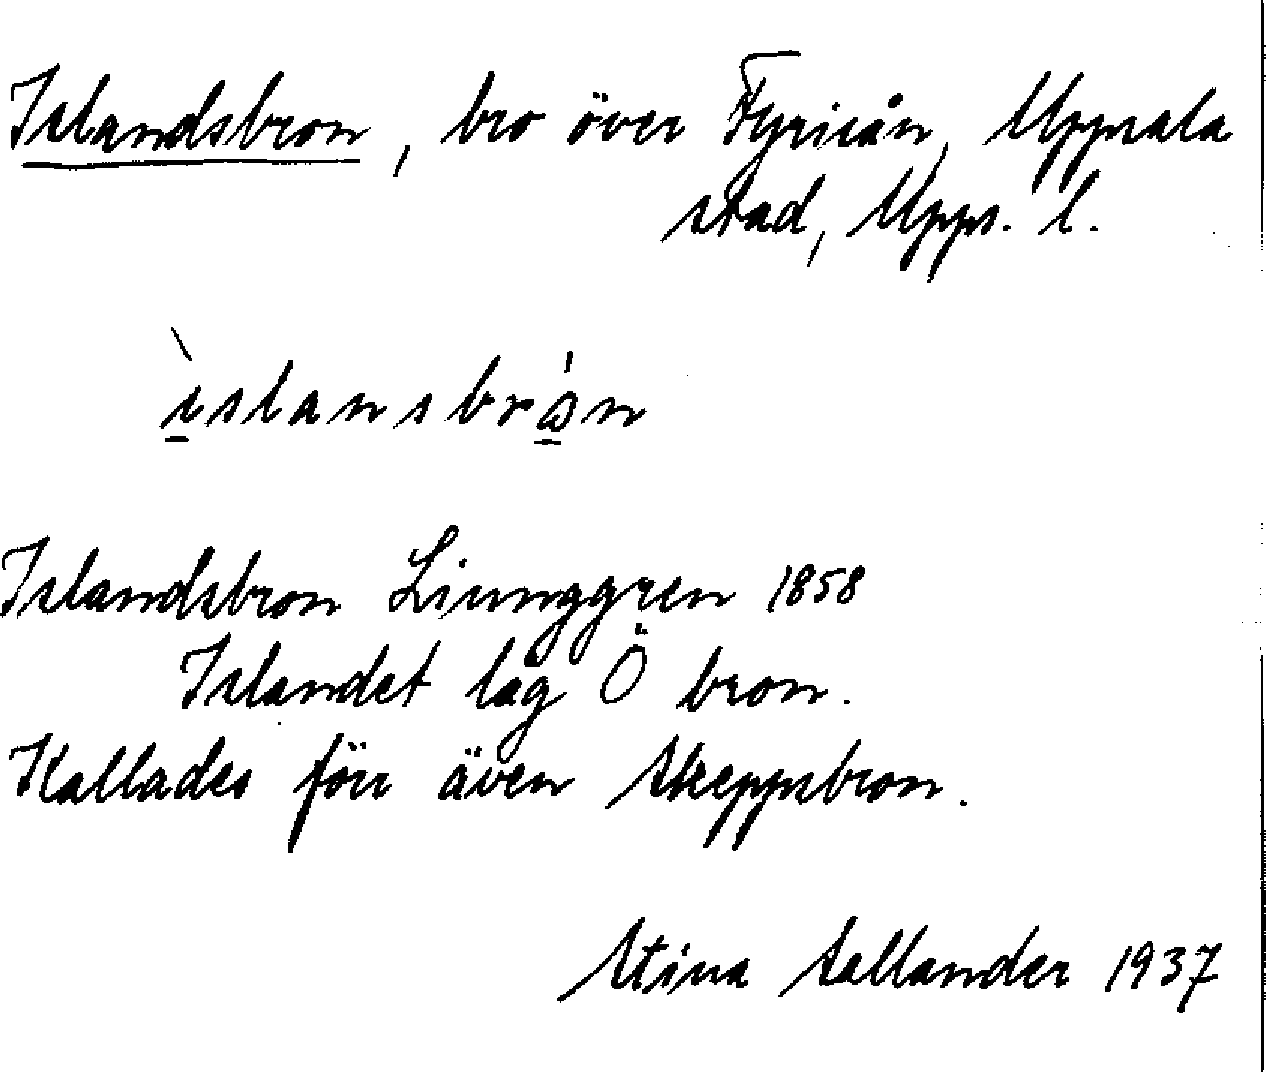 Islandsbron, bro över Fyrisån, Uppsala
stad, Upps. l.
ìslansbrώn
Islandsbron Liunggren 1858
Islandet låg Ö bron.
Kallades förr även Skeppsbron.
Stina Sallander 1937